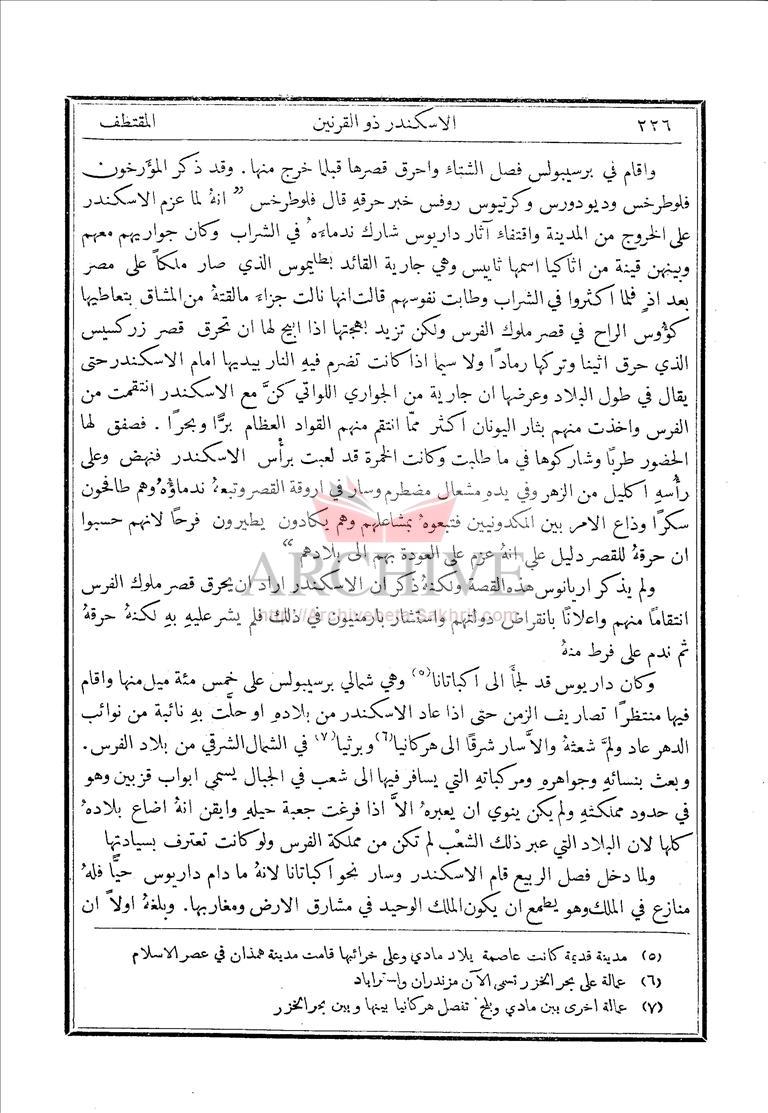 ٢٢٦ الاسكندر ذو القرنين المقتطف
واقام في برسيبولس فصل الشتاء واحرق قصرها قبلما خرج منها . وقد ذكر المؤرخون
فلوطرخس وديودورس وكرتيوس روفس خبر حرقهِ قال فلوطرخس " انهُ لما عزم الاسكندر
على الخروج من المدينة واقتفاء آثار داريوس شارك ندماءهُ في الشراب وكان جواريهم معهم
وبينهن قينة من اثاكيا اسمها ثاييس وهي جارية القائد بطليموس الذي صار ملكاً على مصر
بعد اذٍ فلما اكثروا في الشراب وطابت نفوسهم قالت انها نالت جزاء مالقتهُ من المشاق بتعاطيها
كؤوس الراح في قصر ملوك الفرس ولكن تزيد بهجتها اذا ابيح لها ان تحرق قصر زركسيس
الذي حرق اثينا وتركها رماداً ولا سيما اذا كانت تضرم فيهِ النار بيديها امام الاسكندر حتى
يقال في طول البلاد وعرضها ان جارية من الجواري اللواتي كنَّ مع الاسكندر انتقمت من
الفرس واخذت منهم بثار اليونان اكثر ممّا انتقم منهم القواد العظام برًّا وبحرًا . فصفق لها
الحضور طربًا وشاركوها في ما طلبت وكانت الخمرة قد لعبت برأس الاسكندر فنهض وعلى
رأسهِ اكليل من الزهر وفي يدهِ مشعال مضطرم وسار في اروقة القصر وتبعهُ ندماؤهُ وهم طافحون
سكرًا وذاع الامر بين المكدونيين فتبعوهُ بمشاعلهم وهم يكادون يطيرون فرحًا لانهم حسبوا
ان حرقهُ للقصر دليل على انهُ عزم على العودة بهم الى بلادهم "
ARCHIVE
ولم يذكر اريانوس هذه القصة ولكنهُ ذكر ان الاسكندر اراد ان يحرق قصر ملوك الفرس
http://Archivebeta.Sakhrit.com
انتقامًا منهم واعلانًا بانقراض دولتهم واستشار بارمنيون في ذلك فلم يشر عليهِ بهِ لكنهُ حرقهُ
ثم ندم على فرط منهُ
وكان داريوس قد لجأ الى اكباتانا(٥) وهي شمالي برسيبولس على خمس مئة ميل منها واقام
فيها منتظرًا تصاريف الزمن حتى اذا عاد الاسكندر من بلادهِ او حلَّت بهِ نائبة من نوائب
الدهر عاد ولمَّ شعثهُ والاَّ سار شرقًا الى هركانيا(٦) وبرثيا(٧) في الشمال الشرقي من بلاد الفرس .
وبعث بنسائهِ وجواهرهِ ومركباتهِ التي يسافر فيها الى شعب في الجبال يسمى ابواب قزبين وهو
في حدود مملكتهِ ولم يكن ينوي ان يعبرهُ الاَّ اذا فرغت جعبة حيلهِ وايقن انهُ اضاع بلادهُ
كلها لان البلاد التي عبر ذلك الشعْب لم تكن من مملكة الفرس ولو كانت تعترف بسيادتها
ولما دخل فصل الربيع قام الاسكندر وسار نحو اكباتانا لانهُ ما دام داريوس حيًّا فلهُ
منازع في الملك وهو يطمع ان يكون الملك الوحيد في مشارق الارض ومغاربها . وبلغهُ اولاً ان
(٥) مدينة قديمة كانت عاصمة بلاد مادي وعلى خرائبها قامت مدينة همذان في عصر الاسلام
(٦) عمالة على بحر الخزر تسمى الآن مزندران واستراباد
(٧) عمالة اخرى بين مادي وبلخ تفصل هركانيا بينها وبين بحر الخزر